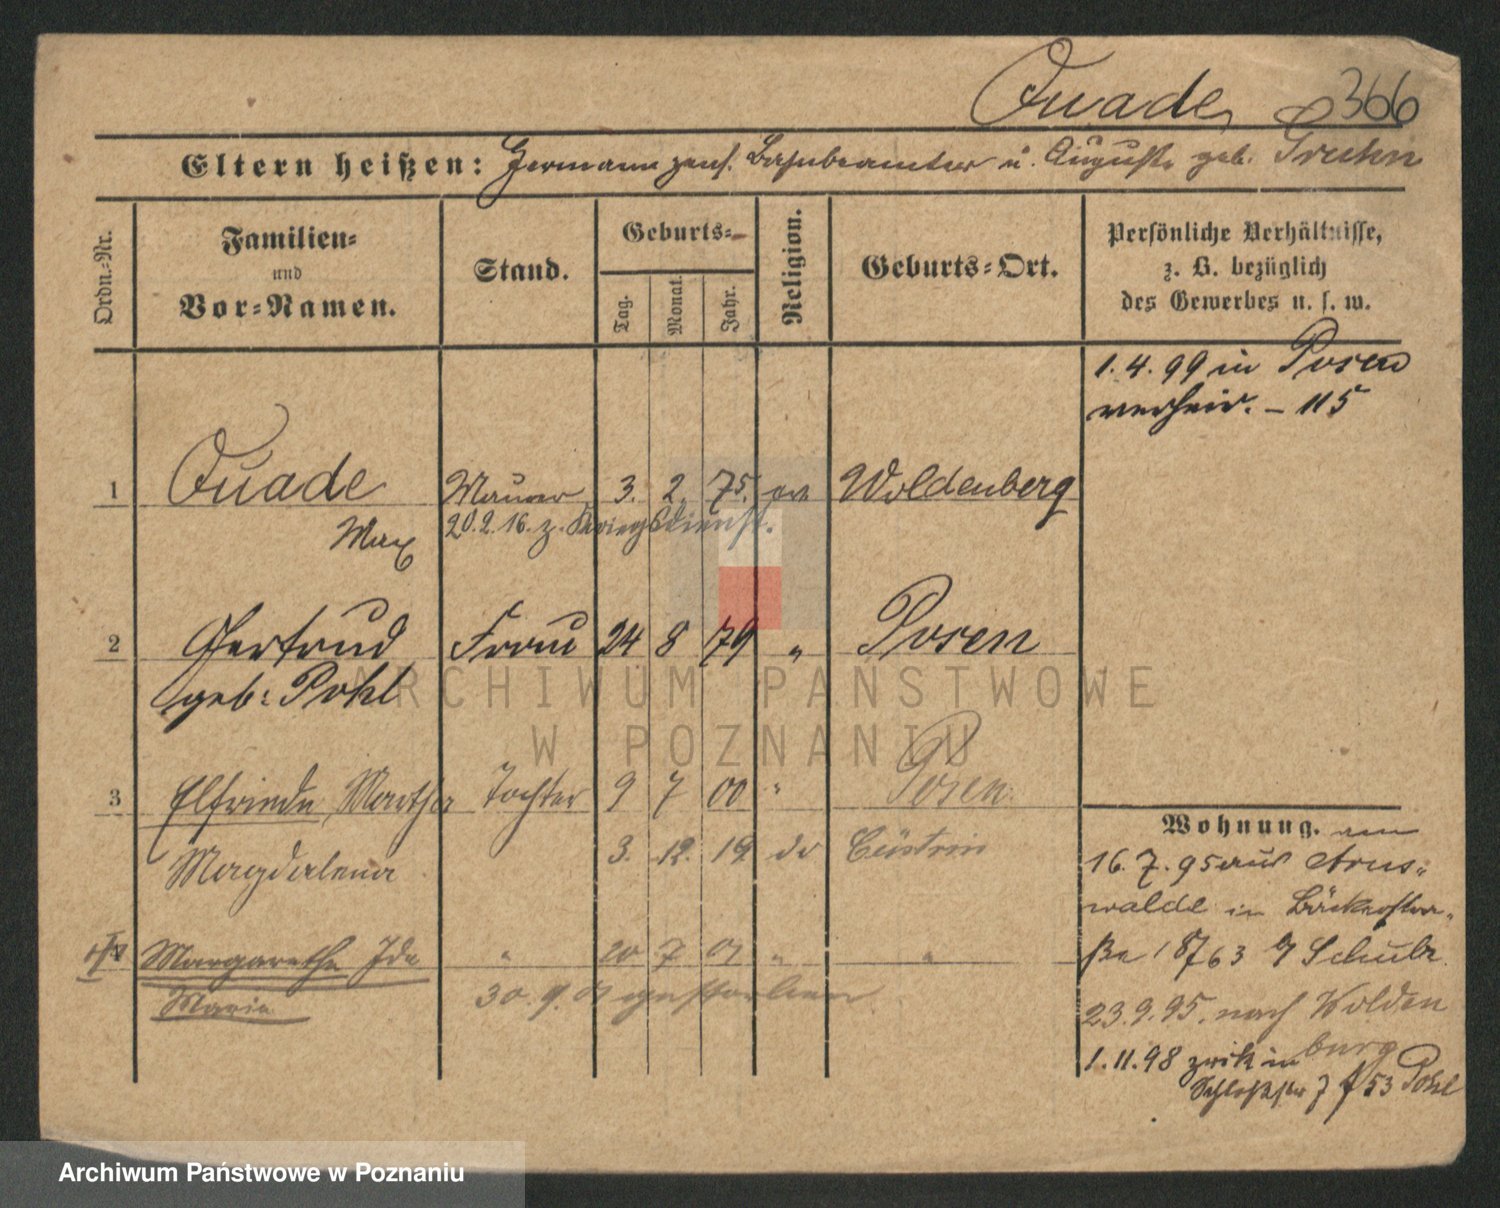 Quade 366
Eltern heißen: Hermann pens. Bahnbeamter u. Auguste geb. Gruhn
Ordn.-Nr.
Familien-
und
Vor-Namen.
Stand.
Geburts-
Tag. Monat. Jahr.
Religion.
Geburts-Ort.
Persönliche Verhältnisse,
z. B. bezüglich
des Gewerbes u. s. w.
1.4.99 in Posen
verheir. – 115
1 Quade Maurer 3. 2. 75. ev Woldenberg
Max 20.2.16. z. Kriegsdienst.
2 Gertrud Frau 24 8 79 " Posen
geb: Pohl
3 Elfriede Martha Tochter 9 7 00 " Posen.
Magdalena 3. 12. 19 do Cüstrin
Margarethe Ida " 20 7 01 " "
Marie 30.9.01 gestorben
Wohnung.
16.7.95 aus Arns-
walde in Bäckerstra-
ße 18763 Schulz
23.9.95. nach Wolden
burg
1.11.98 zurück in
Schloßstr 7 53 Pohl
ARCHIWUM PAŃSTWOWE
W POZNANIU
Archiwum Państwowe w Poznaniu